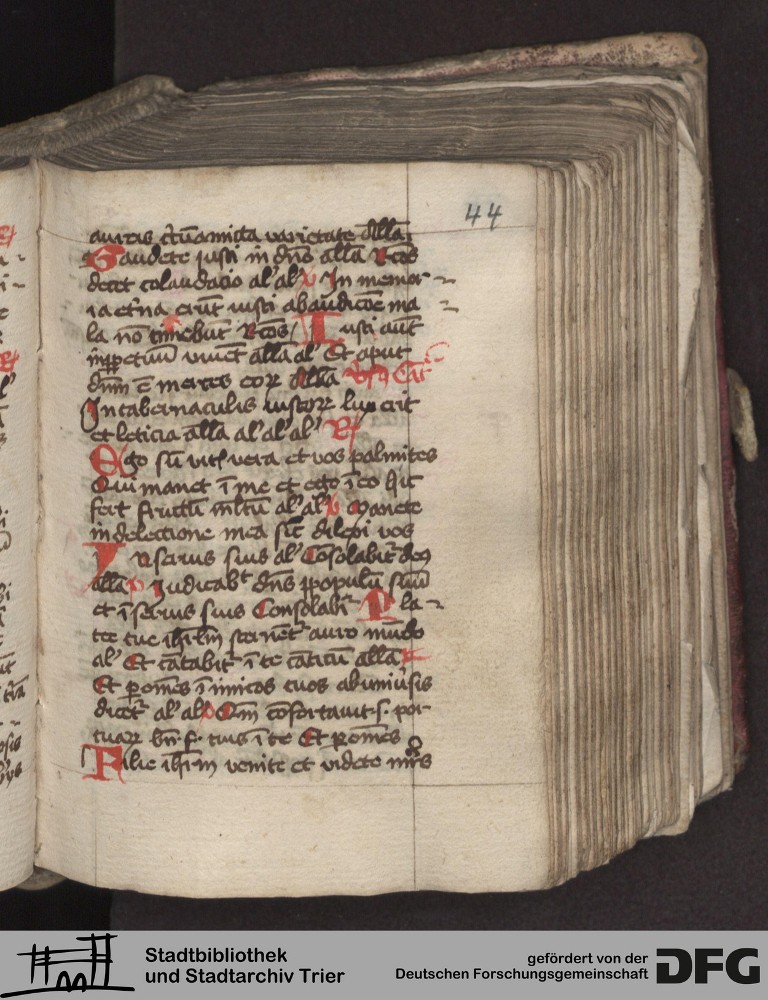 44
auratis cͬcūamicta varietate Allā
Gaudete iusti in dn̄o allā Rcōs
decet colaudacio al' al' v In memor
ia et̄na erūt iusti ab audicōe ma
la nō timebūt Rcōs Iusti aūt
inꝑpetuū viuēt allā al' Et aput
dnm̄ ē merces eoꝝ Allā
In tabernaculis iustoꝝ lux erit
et leticia allā al' al' al' R
Ego sū vitꝭ vera et vos palmites
Qui manet ī me et ego ī eo hic
fert fructū mltū al' al' v Manete
in deleccione mea sic̄ dilexi vos
In seruis suis al' Consolabit̄ deꝯ
allā v Iudicabt dn̄s ppopulū suū
et ī seruis suis Consolabit̄ Pla
tee tue ihrlm̄ sternēt̄ auro mūdo
al' Et cātabit̄ ī te cāticū allā
Et ꝑ omēs inimicos tuos ab vniu̾sis
dicet̄ al' al' v Qm̄ cōfortauit s. por
tuaꝝ bn̄. f. tuis ī te Et ꝑ omēs
Filie ihrlm̄ venite et videte mr̄es
Stadtbibliothek
und Stadtarchiv Trier
gefördert von der
Deutschen Forschungsgemeinschaft
DFG